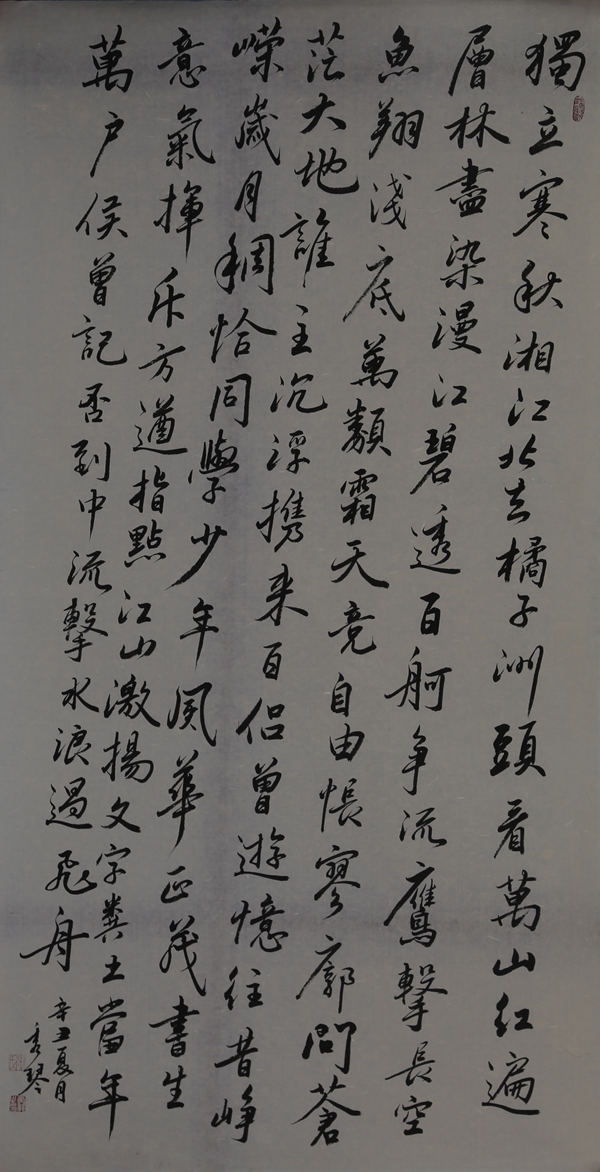 獨立寒秋湘江北去橘子洲頭看萬山紅遍
層林盡染漫江碧透百舸争流鷹擊長空
魚翔淺底萬類霜天竞自由悵寥廓問蒼
茫大地誰主沉浮携来百侣曾遊憶往昔崢
嶸歲月稠恰同學少年風華正茂書生
意氣揮斥方遒指點江山激揚文字糞土當年
萬户侯曾記否到中流擊水浪遏飛舟
辛丑夏月
秀琴